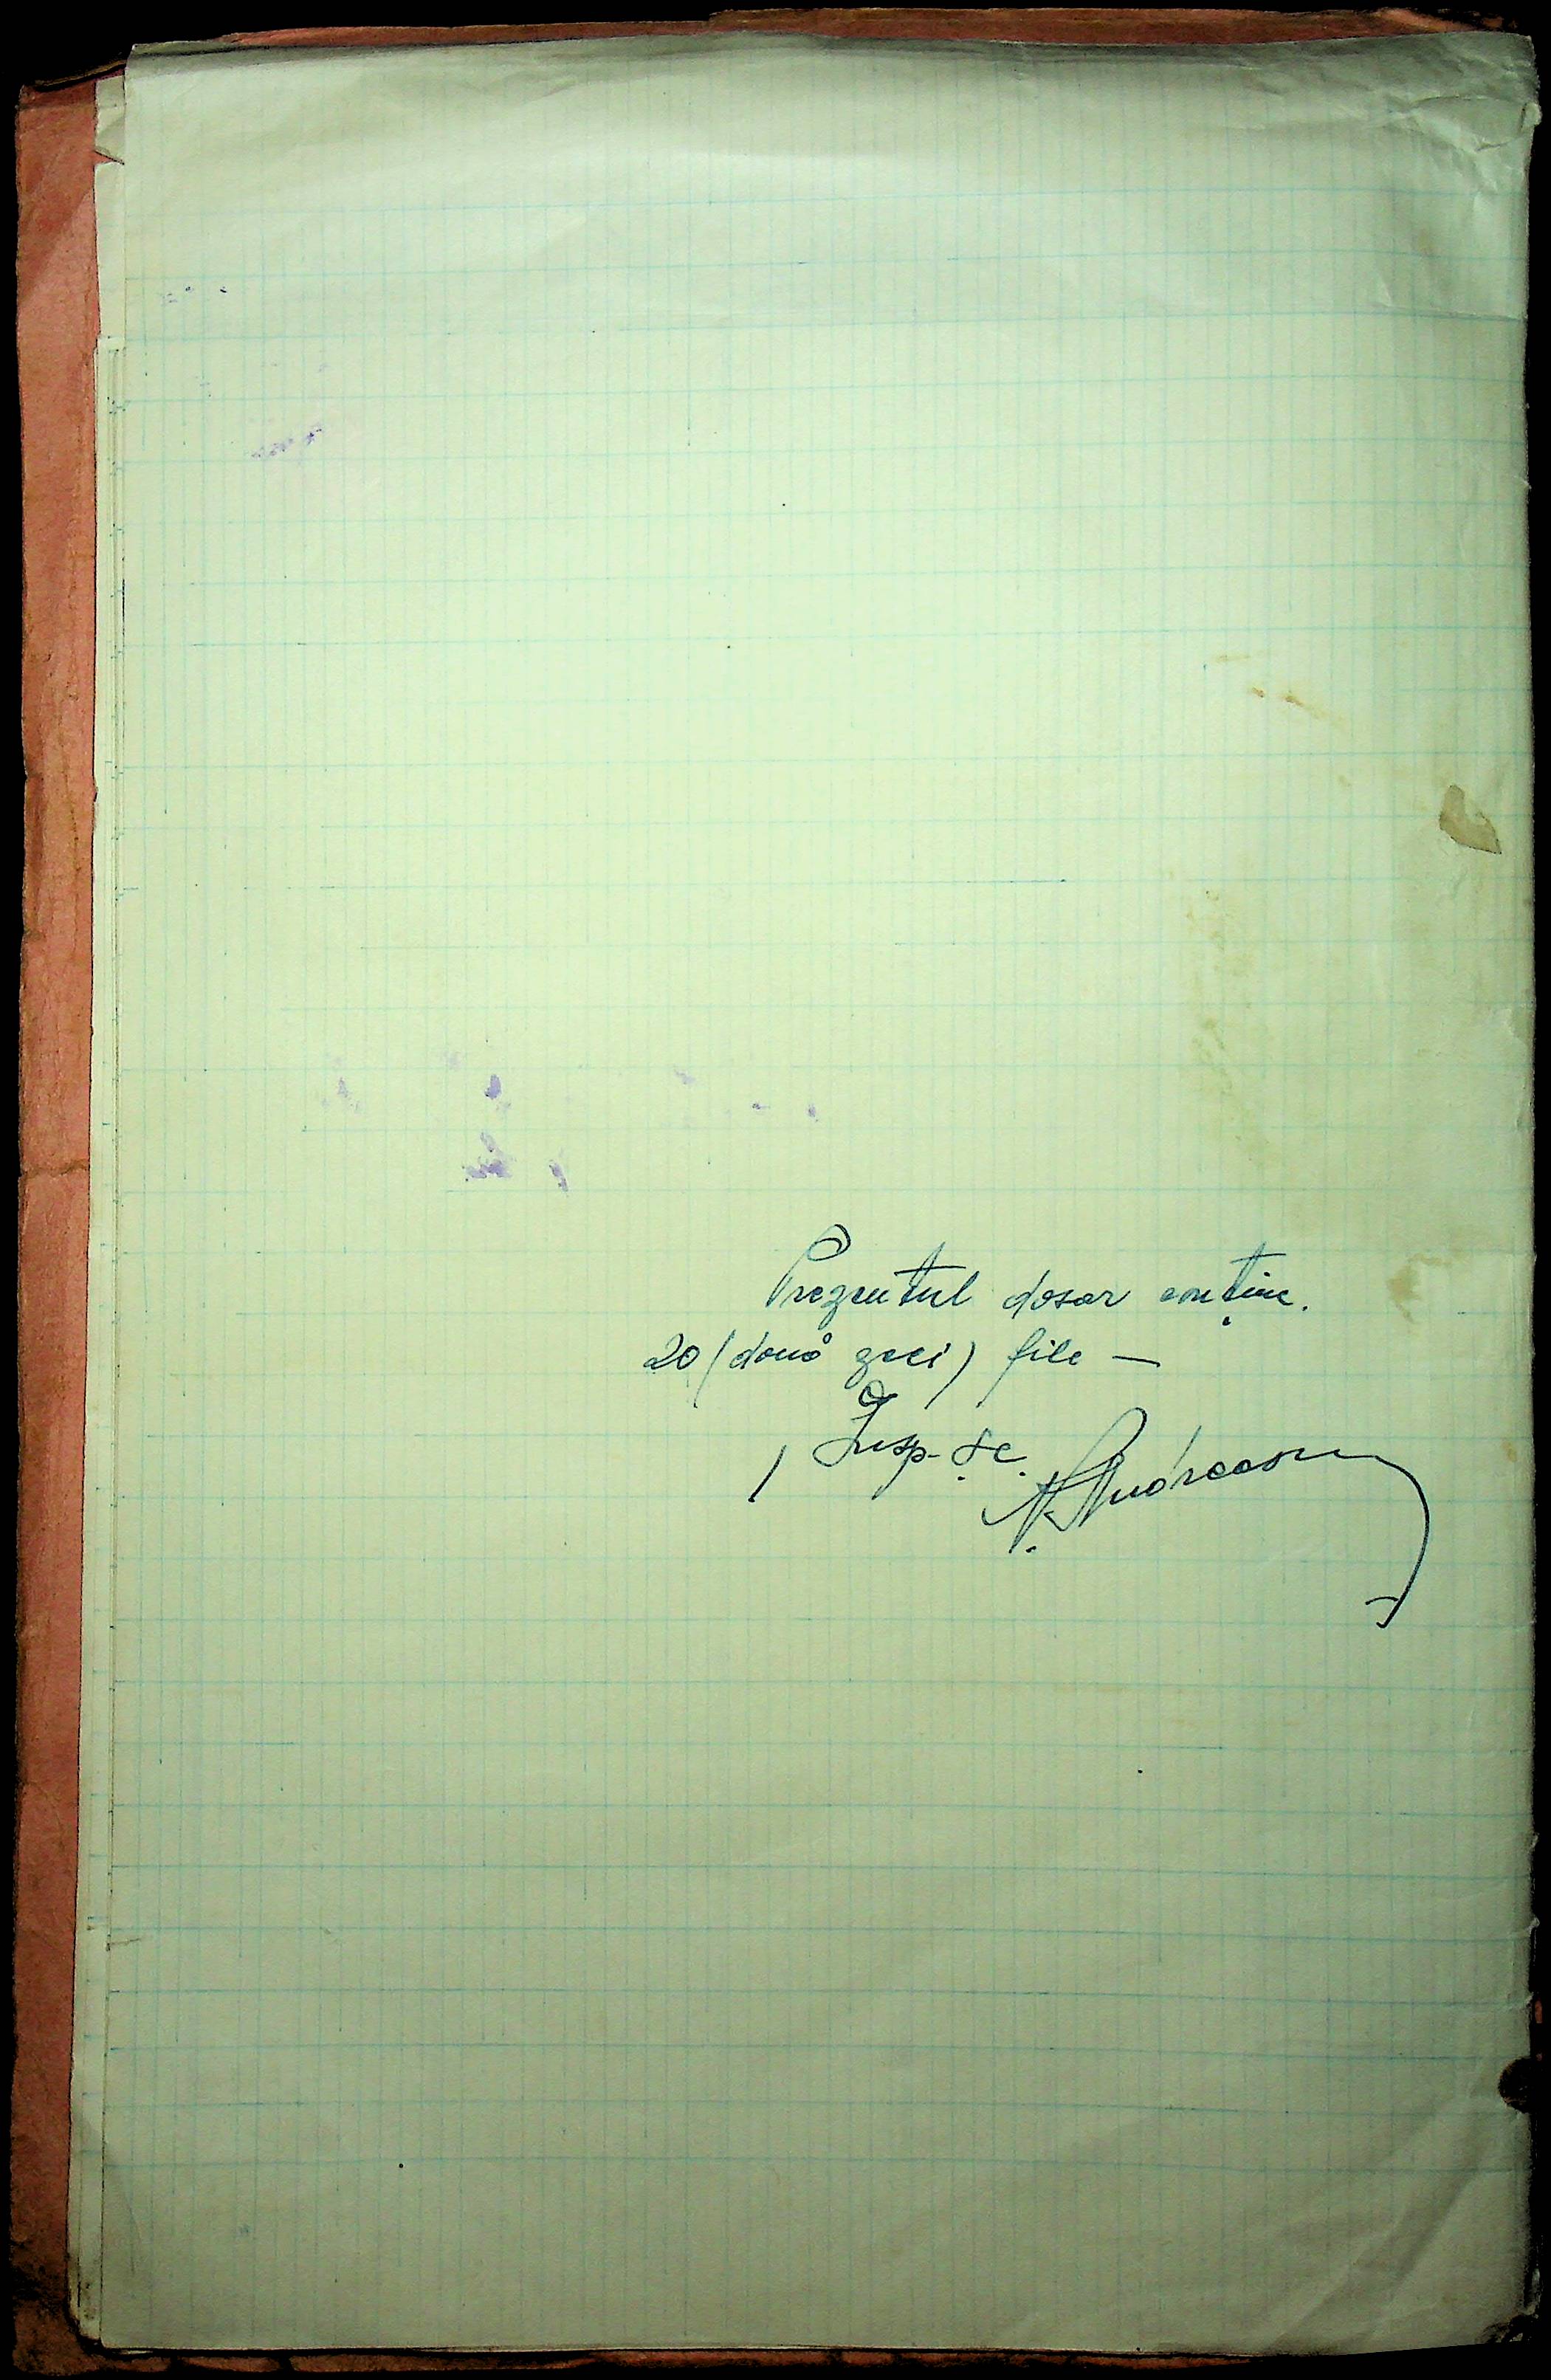 Prezentul dosar conține.
20 (două zeci) file —
/ Insp. Șc.
N. Andreescu